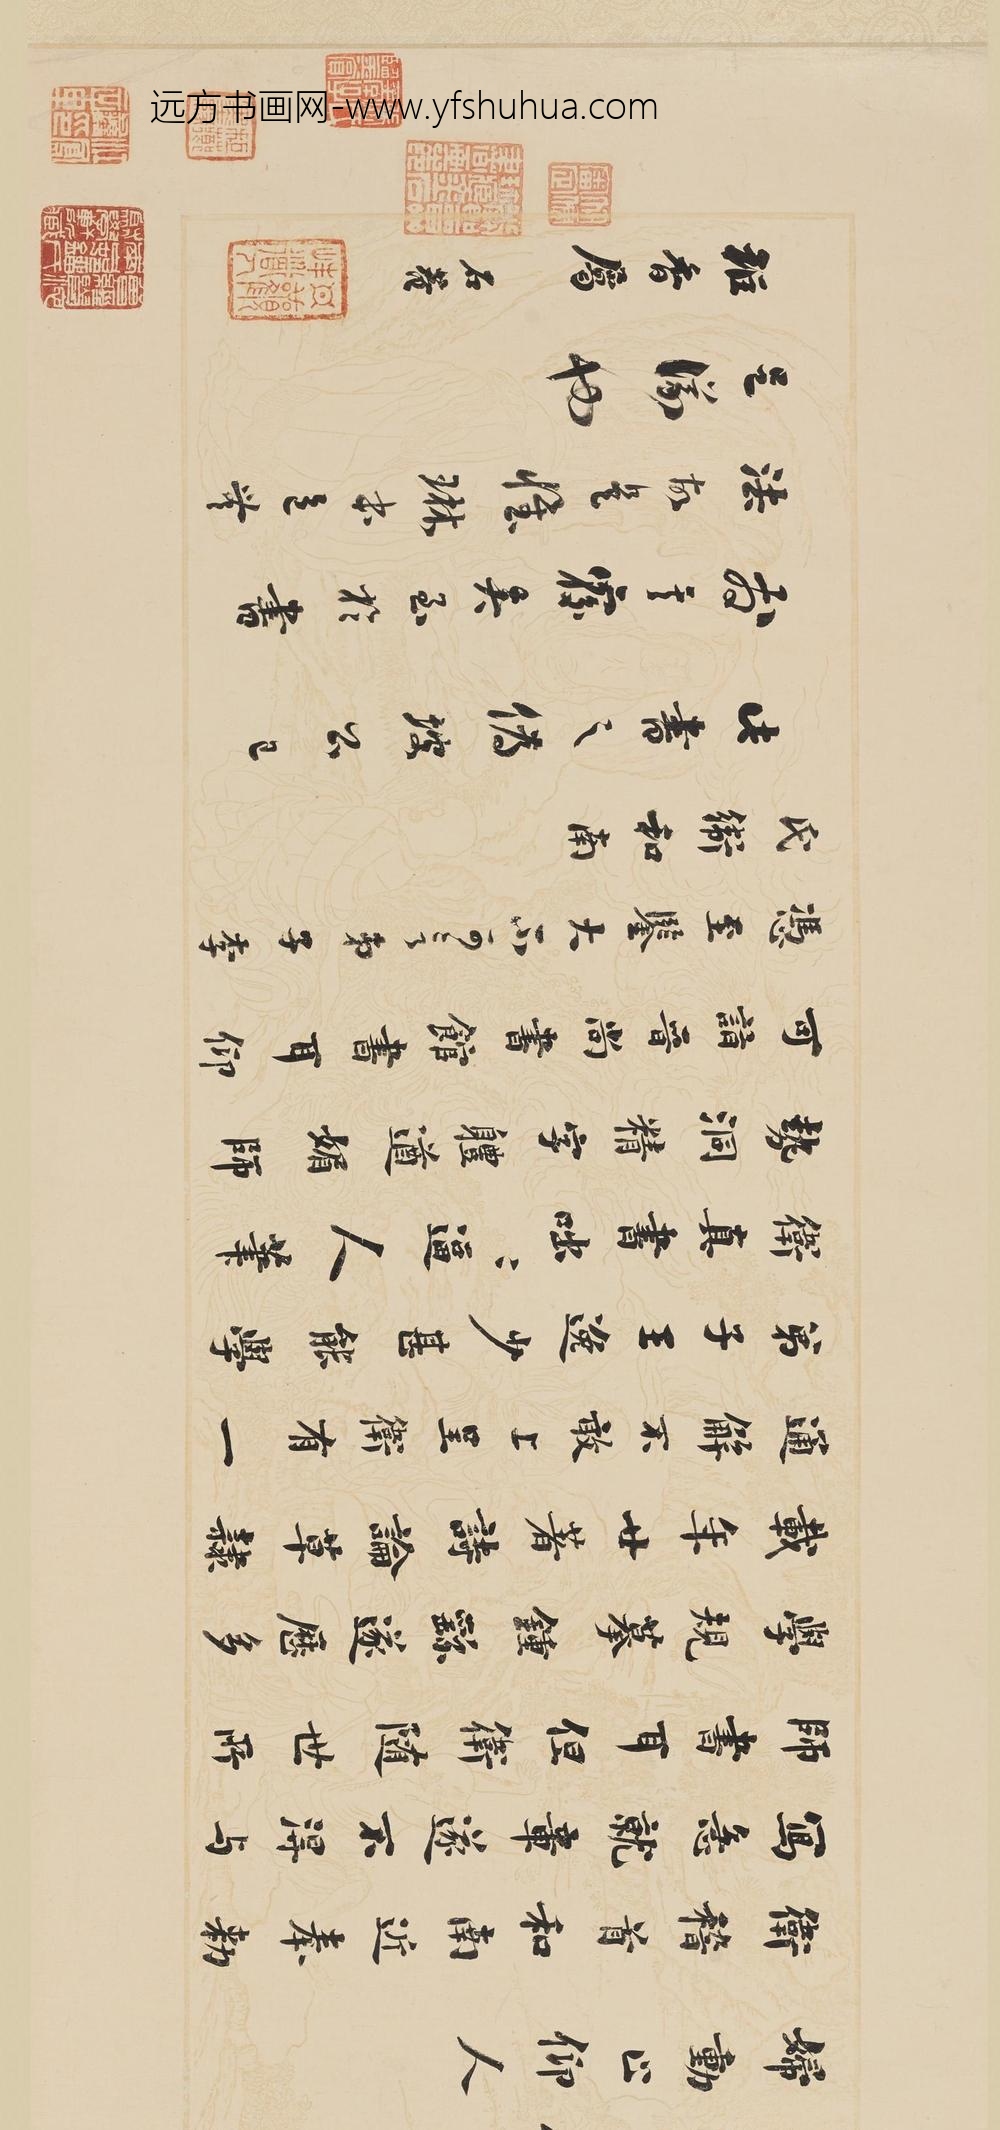 远方书画网-www.yfshuhua.com
婦動止仰人
衛稽首和南近奉勅
寫急就章遂不得与
師書耳但衛随世所
學規摹鍾繇遂歷多
載年廿著詩論草隸
通解不敢上呈衛有一
弟子王逸少甚能學
衛真書咄々逼人筆
勢洞精字體遒媚師
可詣晉尚書館書耳仰
馮至鑒大不可言弟子李
氏衛和南
此書之偽坡公已
察矣至於書
法懷琳
也
香屬 石菴